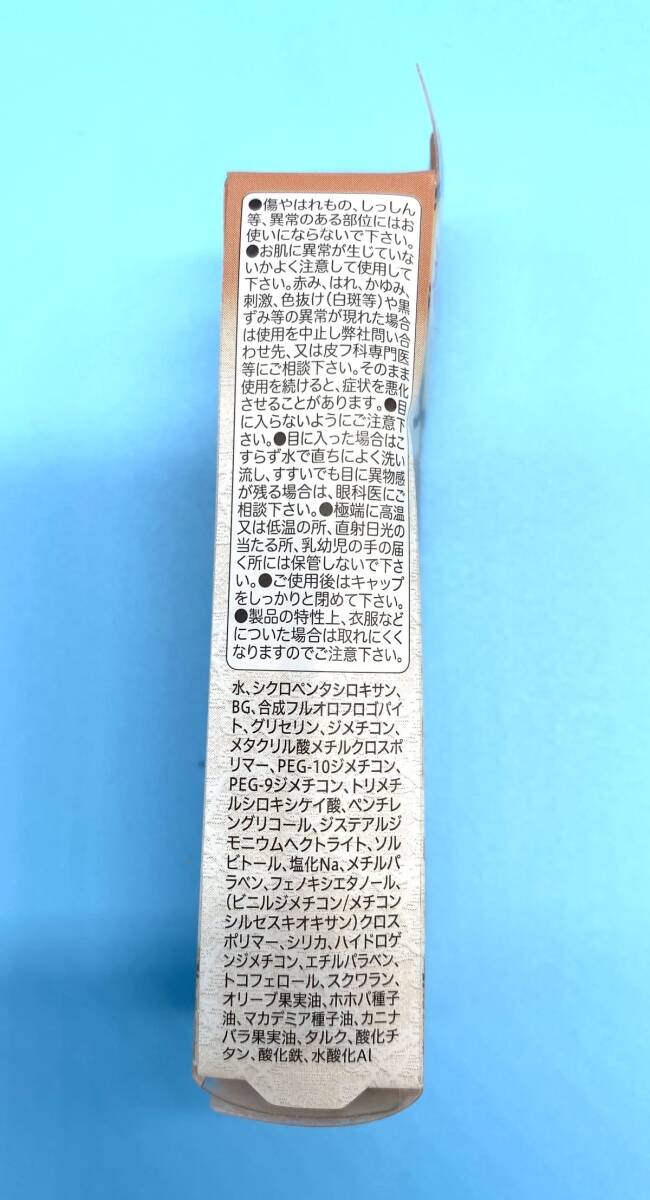 ●傷やはれもの、しっしん
等、異常のある部位にはお
使いにならないで下さい。
●お肌に異常が生じていな
いかよく注意して使用して
下さい。赤み、はれ、かゆみ、
刺激、色抜け(白斑等)や黒
ずみ等の異常が現れた場合
は使用を中止し弊社問い合
わせ先、又は皮フ科専門医
等にご相談下さい。そのまま
使用を続けると、症状を悪化
させることがあります。●目
に入らないようにご注意下
さい。●目に入った場合はこ
すらず水で直ちによく洗い
流し、すすいでも目に異物感
が残る場合は、眼科医にご
相談下さい。●極端に高温
又は低温の所、直射日光の
当たる所、乳幼児の手の届
く所には保管しないで下さ
い。●ご使用後はキャップ
をしっかりと閉めて下さい。
●製品の特性上、衣服など
についた場合は取れにくく
なりますのでご注意下さい。
水、シクロペンタシロキサン、
BG、合成フルオロフロゴパイ
ト、グリセリン、ジメチコン、
メタクリル酸メチルクロスポ
リマー、PEG-10ジメチコン、
PEG-9ジメチコン、トリメチ
ルシロキシケイ酸、ペンチレ
ングリコール、ジステアルジ
モニウムヘクトライト、ソル
ビトール、塩化Na、メチルパ
ラベン、フェノキシエタノール、
(ビニルジメチコン/メチコン
シルセスキオキサン)クロス
ポリマー、シリカ、ハイドロゲ
ンジメチコン、エチルパラベン、
トコフェロール、スクワラン、
オリーブ果実油、ホホバ種子
油、マカデミア種子油、カニナ
バラ果実油、タルク、酸化チ
タン、酸化鉄、水酸化Al